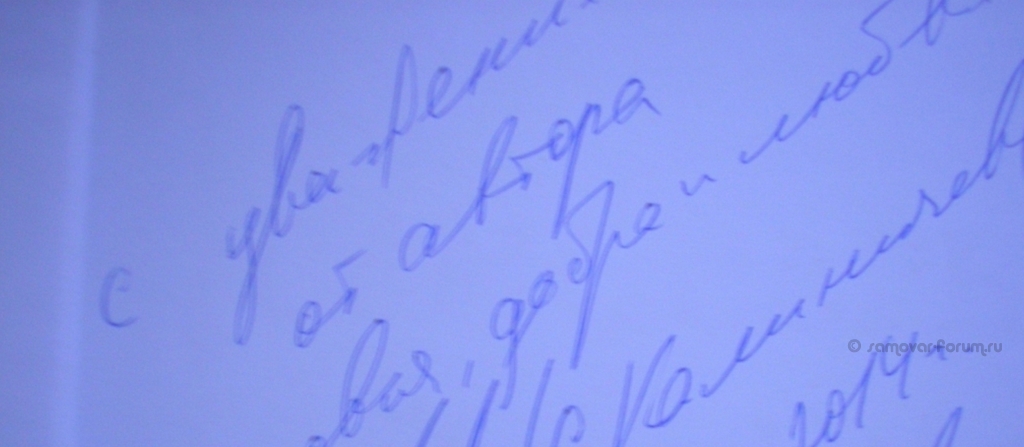 с уважени
от автора
овья, добра и любви
Калиничев
© samovar-forum.ru
2014